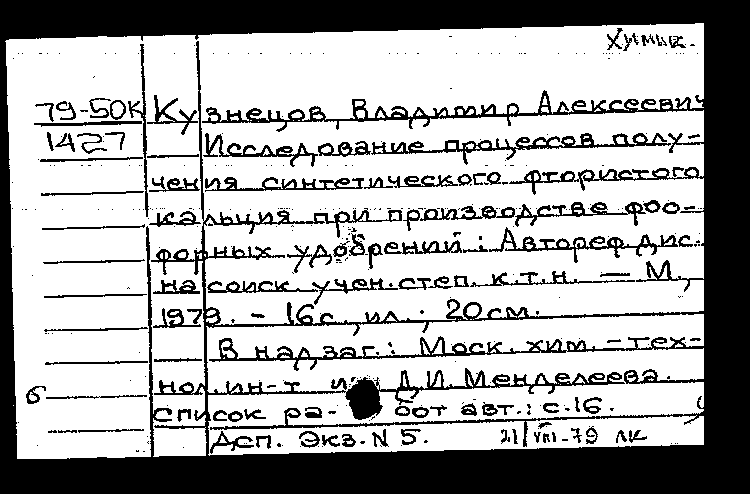 Химик.
79-50К Кузнецов, Владимир Алексеевич
1427 Исследование процессов полу-
чения синтетического фтористого
кальция при производстве фос-
форных удобрений : Автореф. дис.
на соиск. учен. степ. к.т.н. — М.,
1979. - 16 с., ил. ; 20 см.
В надзаг.: Моск. хим.-тех-
б нол. ин-т им. Д.И. Менделеева.
Список ра- бот авт.: с. 16.
Дсп. Экз. N 5. 21/VIII-79 ЛК